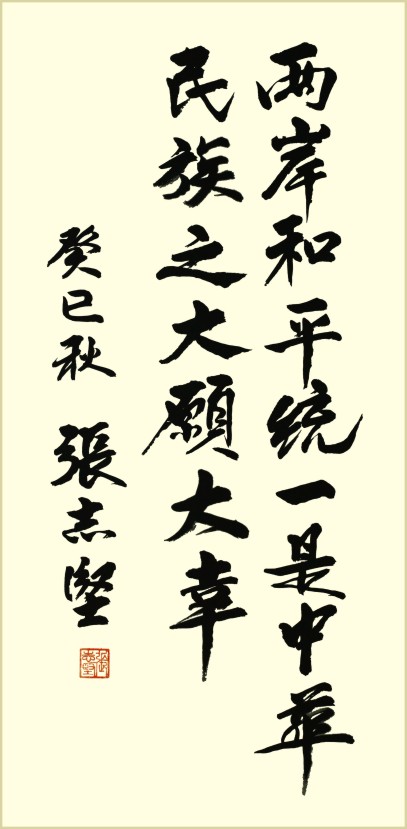 兩岸和平統一是中華
民族之大願大幸
癸巳秋 張志堅